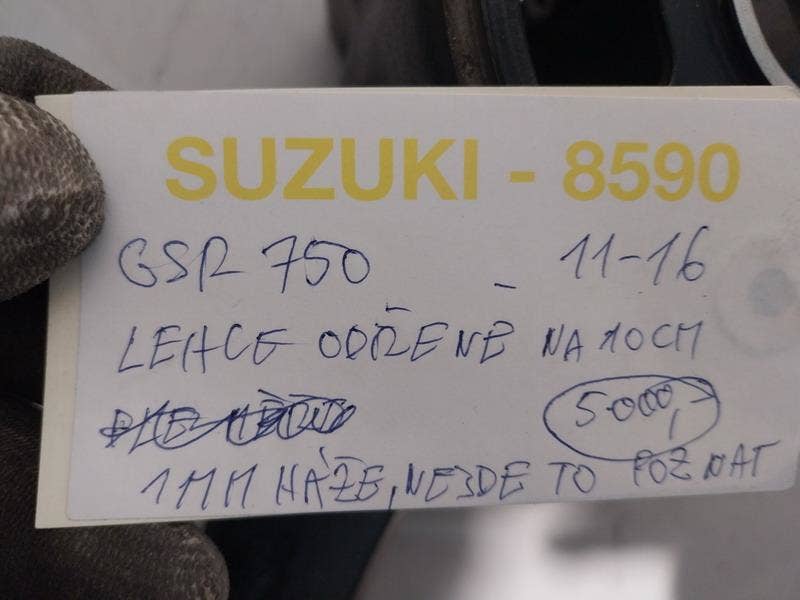 SUZUKI - 8590
GSR 750 - 11-16
LEHCE ODŘENÉ NA 10CM
5000,-
1MM HÁŽE, NEJDE TO POZNAT